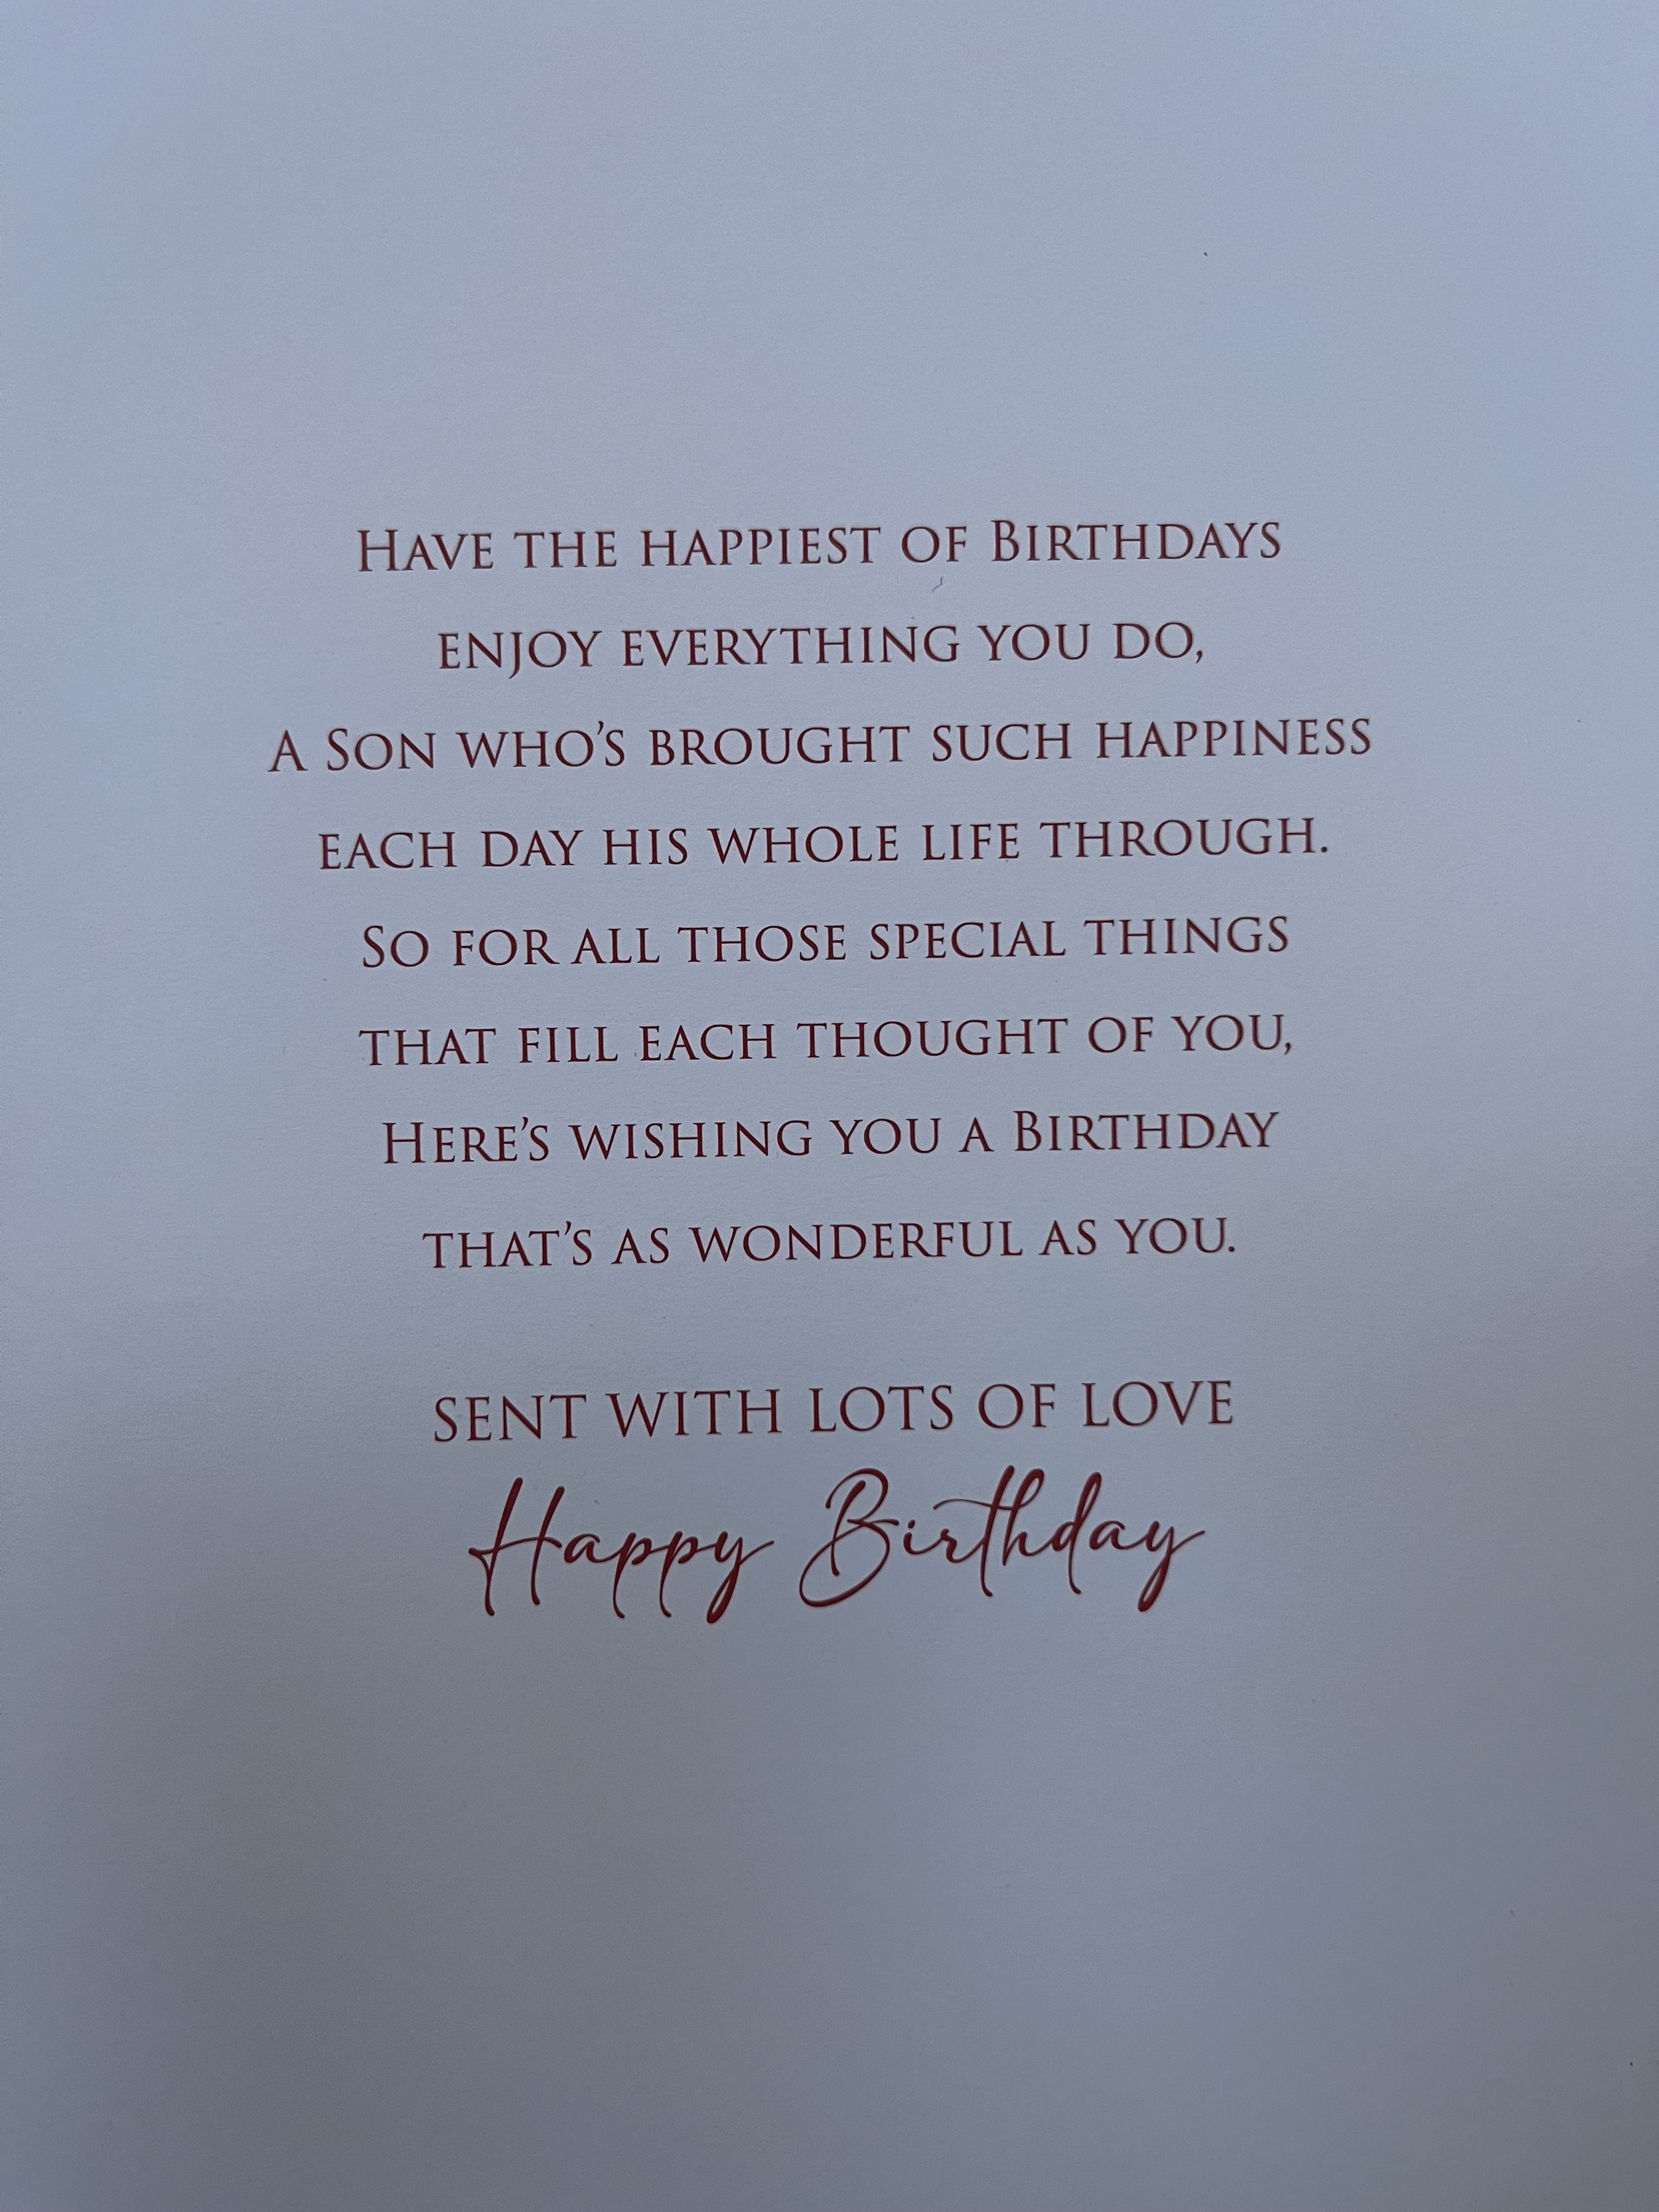 Have the happiest of Birthdays
enjoy everything you do,
a Son who’s brought such happiness
each day his whole life through.
So for all those special things
that fill each thought of you,
Here’s wishing you a Birthday
that’s as wonderful as you.
SENT WITH LOTS OF LOVE
Happy Birthday